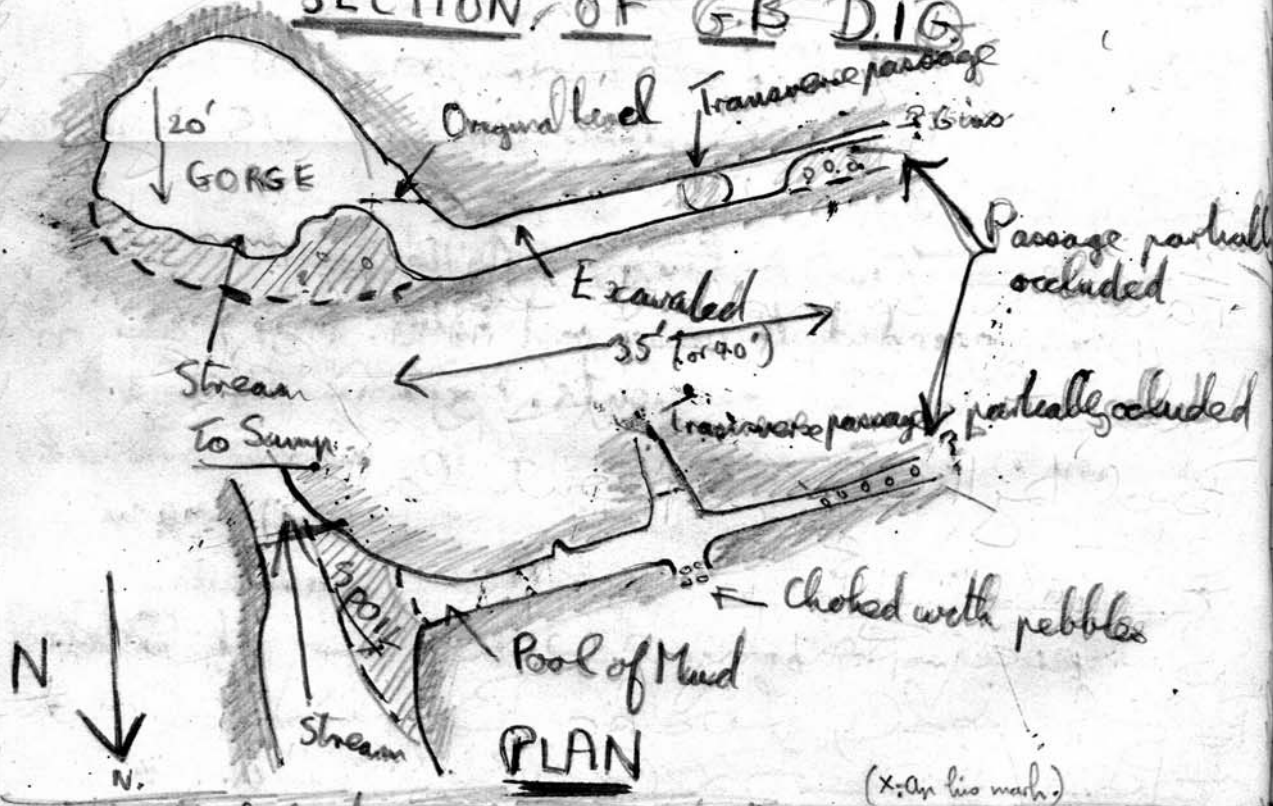 SECTION OF GB DIG
20'
GORGE
Original level
Transverse passage
Passage partially
occluded
Excavated
35' (or 40')
Stream
To Sump
Transverse passage
partially occluded
?
SPOIL
Choked with pebbles
Pool of Mud
N
Stream
N.
PLAN
his mark.)